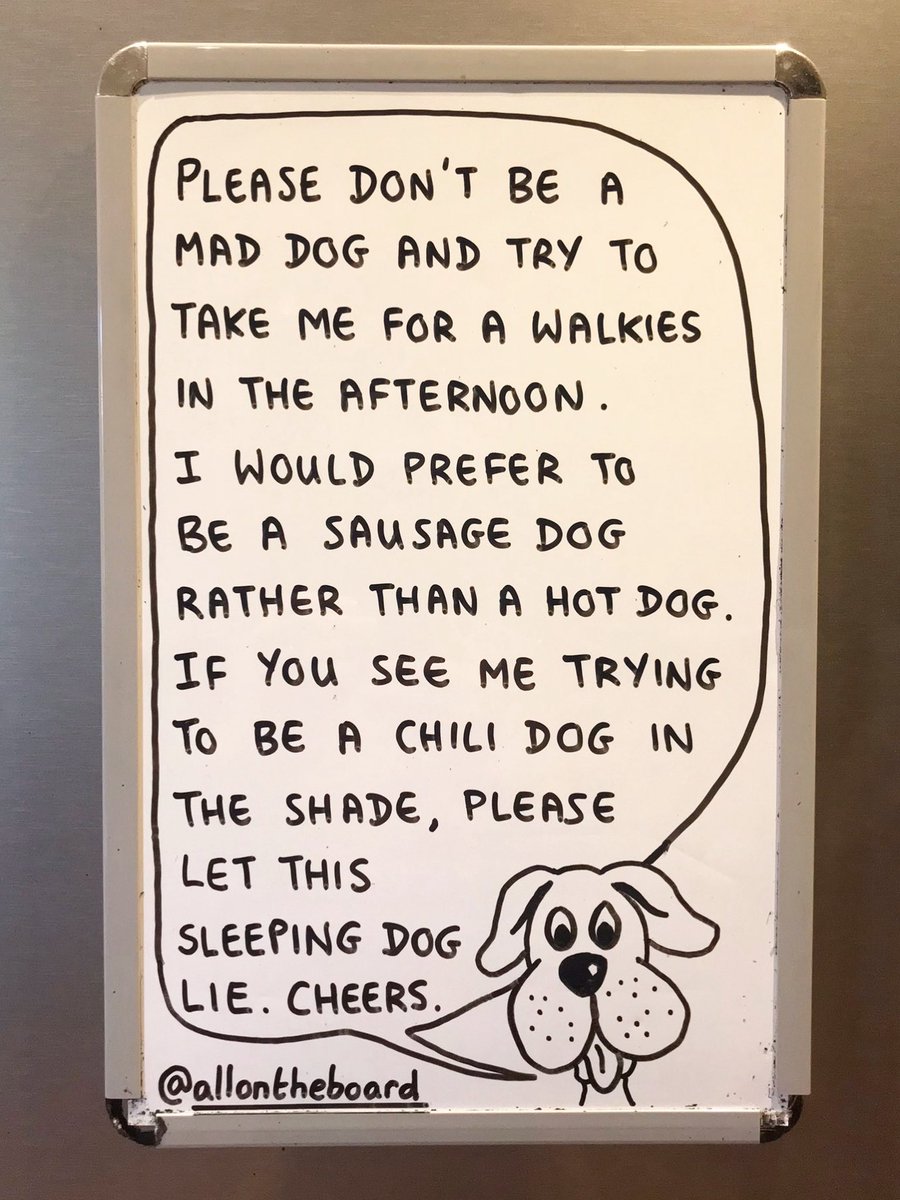 PLEASE DON'T BE A
MAD DOG AND TRY TO
TAKE ME FOR A WALKIES
IN THE AFTERNOON.
I WOULD PREFER TO
BE A SAUSAGE DOG
RATHER THAN A HOT DOG.
IF YOU SEE ME TRYING
TO BE A CHILI DOG IN
THE SHADE, PLEASE
LET THIS
SLEEPING DOG
LIE. CHEERS.
@allontheboard